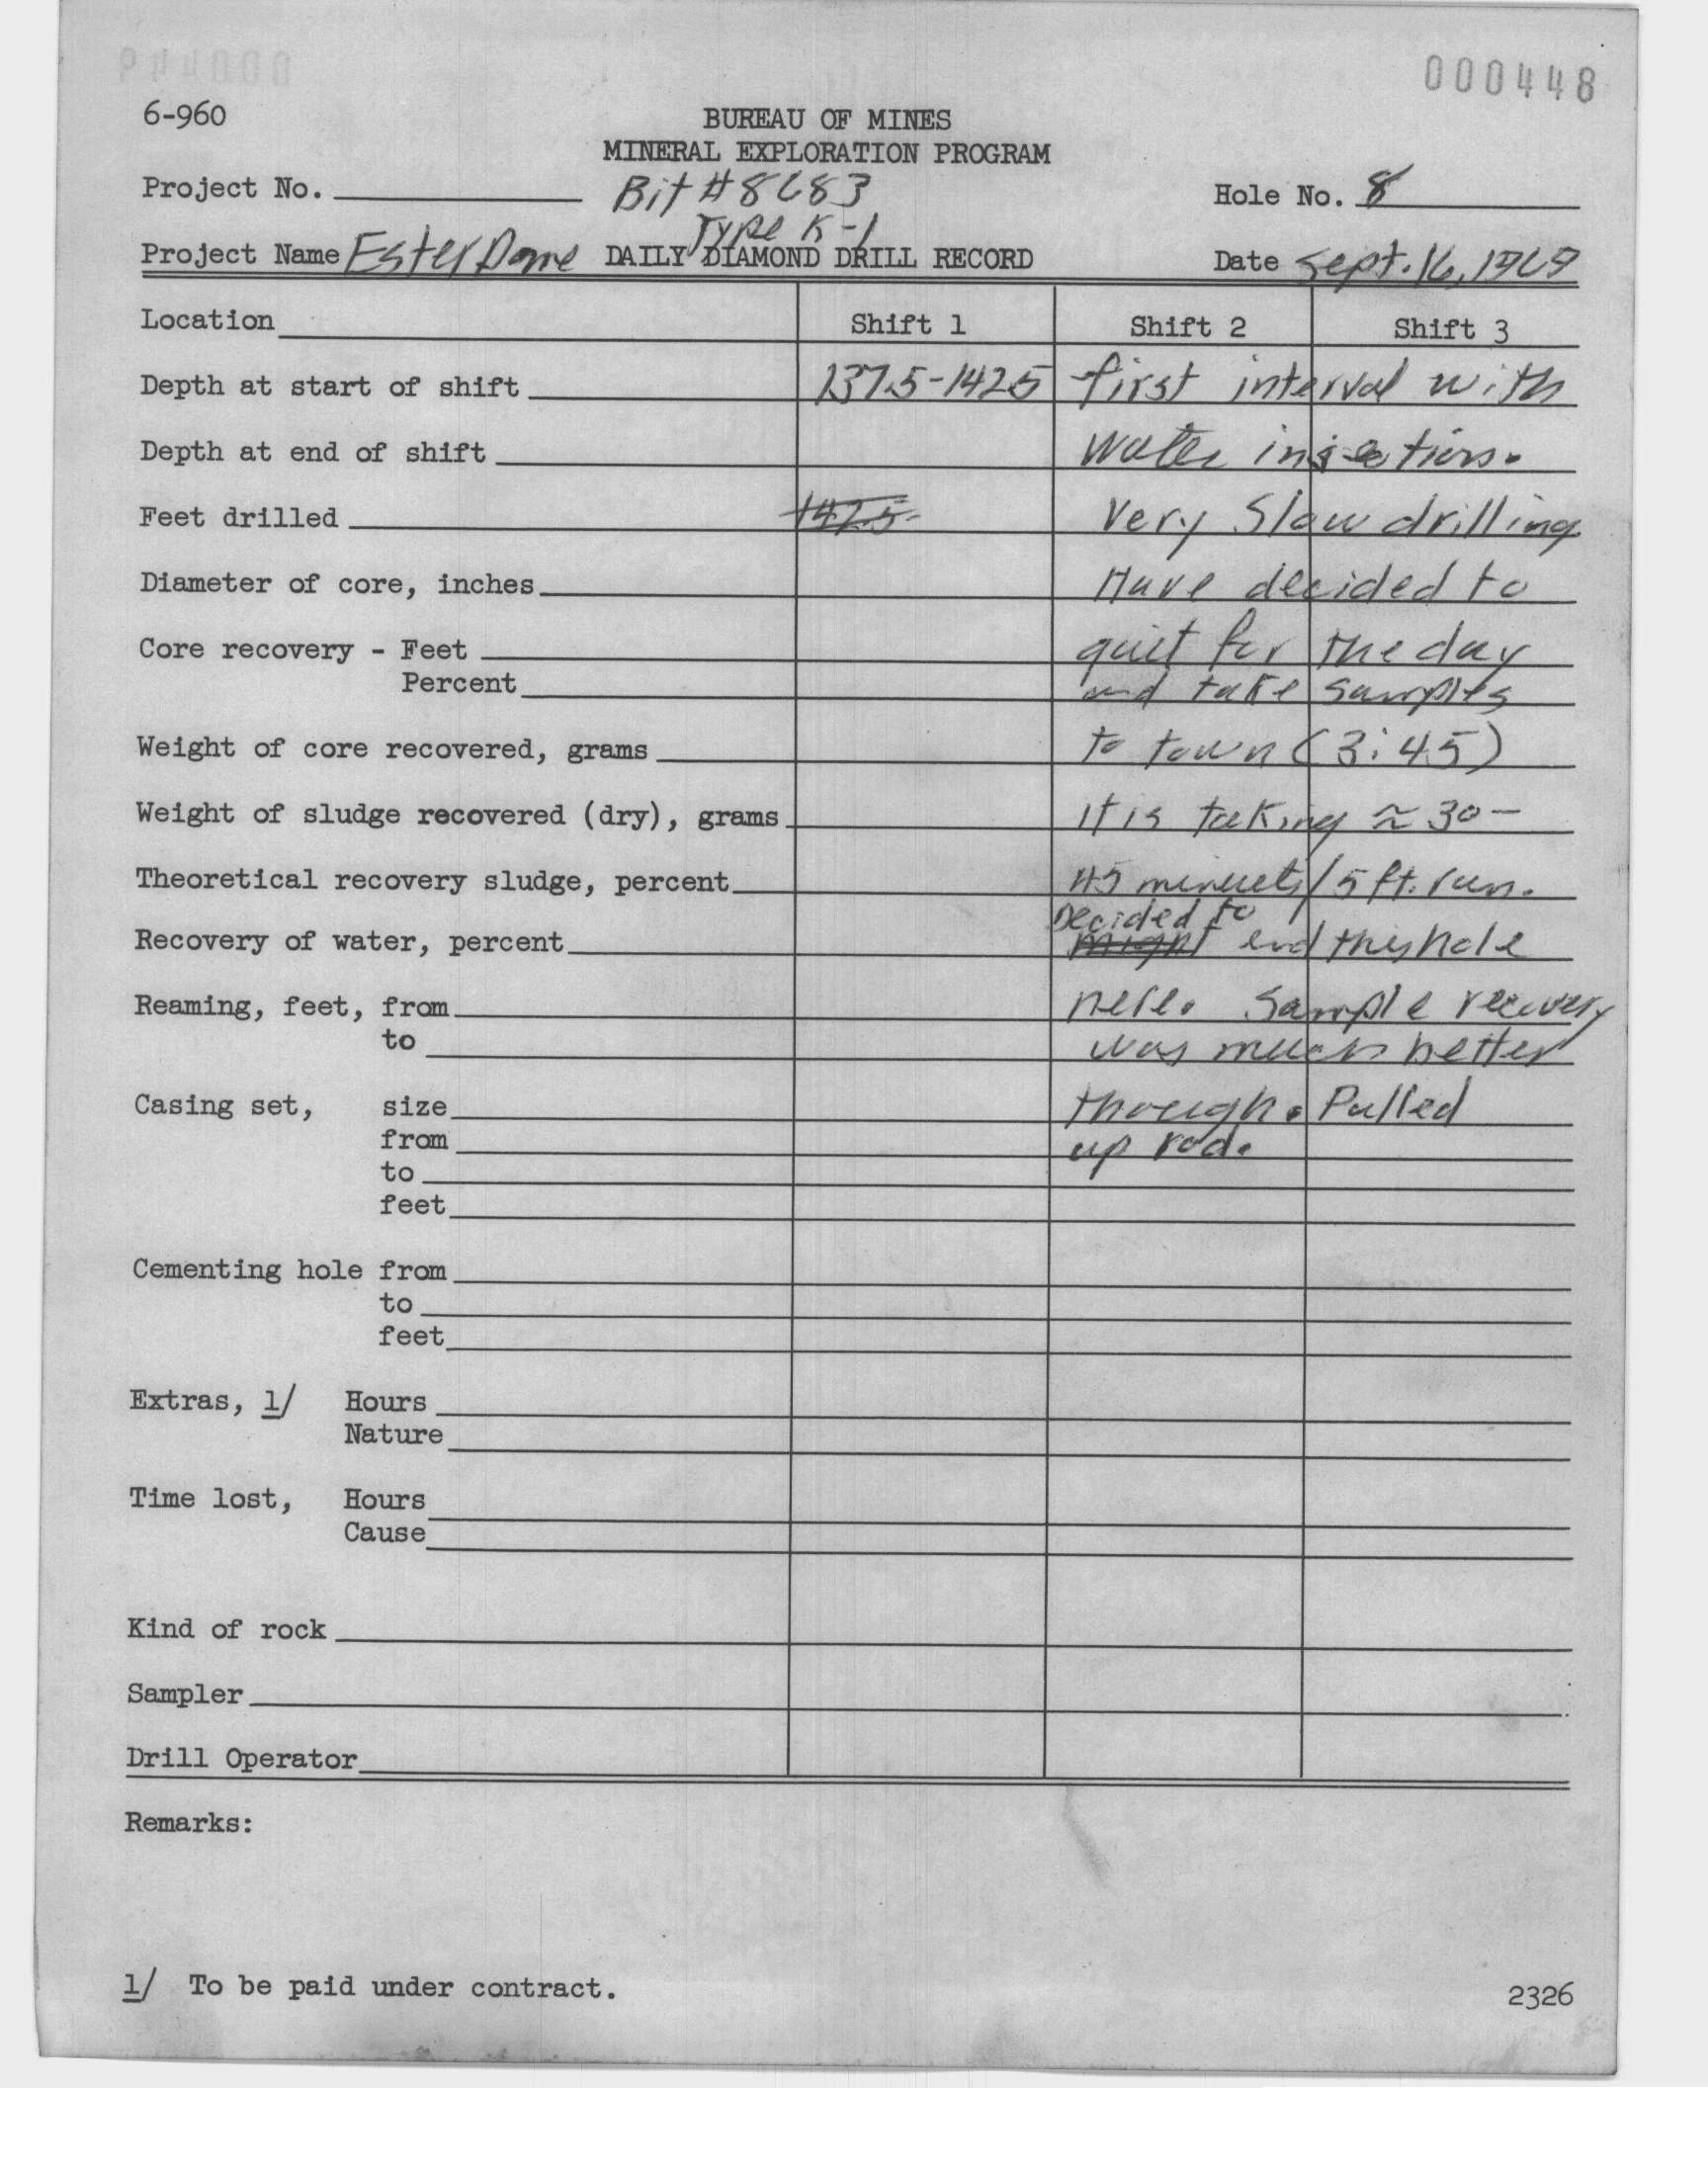 000448
6-960
BUREAU OF MINES
MINERAL EXPLORATION PROGRAM
Project No. Bit #8683 Hole No. 8
Type K-1
Project Name Ester Dome DAILY DIAMOND DRILL RECORD Date Sept. 16, 1969
Location Shift 1 Shift 2 Shift 3
Depth at start of shift 137.5-142.5 first interval with
Depth at end of shift water injection.
Feet drilled 142.5 Very Slow drilling
Diameter of core, inches Have decided to
Core recovery - Feet quit for the day
Percent and take samples
Weight of core recovered, grams to town (3:45)
Weight of sludge recovered (dry), grams it is taking ≈ 30-
Theoretical recovery sludge, percent 45 minuets/5 ft. run.
Decided to
Recovery of water, percent might end this hole
Reaming, feet, from here. Sample recovery
to was much better
Casing set, size though. Pulled
from up rod.
to
feet
Cementing hole from
to
feet
Extras, 1/ Hours
Nature
Time lost, Hours
Cause
Kind of rock
Sampler
Drill Operator
Remarks:
1/ To be paid under contract.
2326